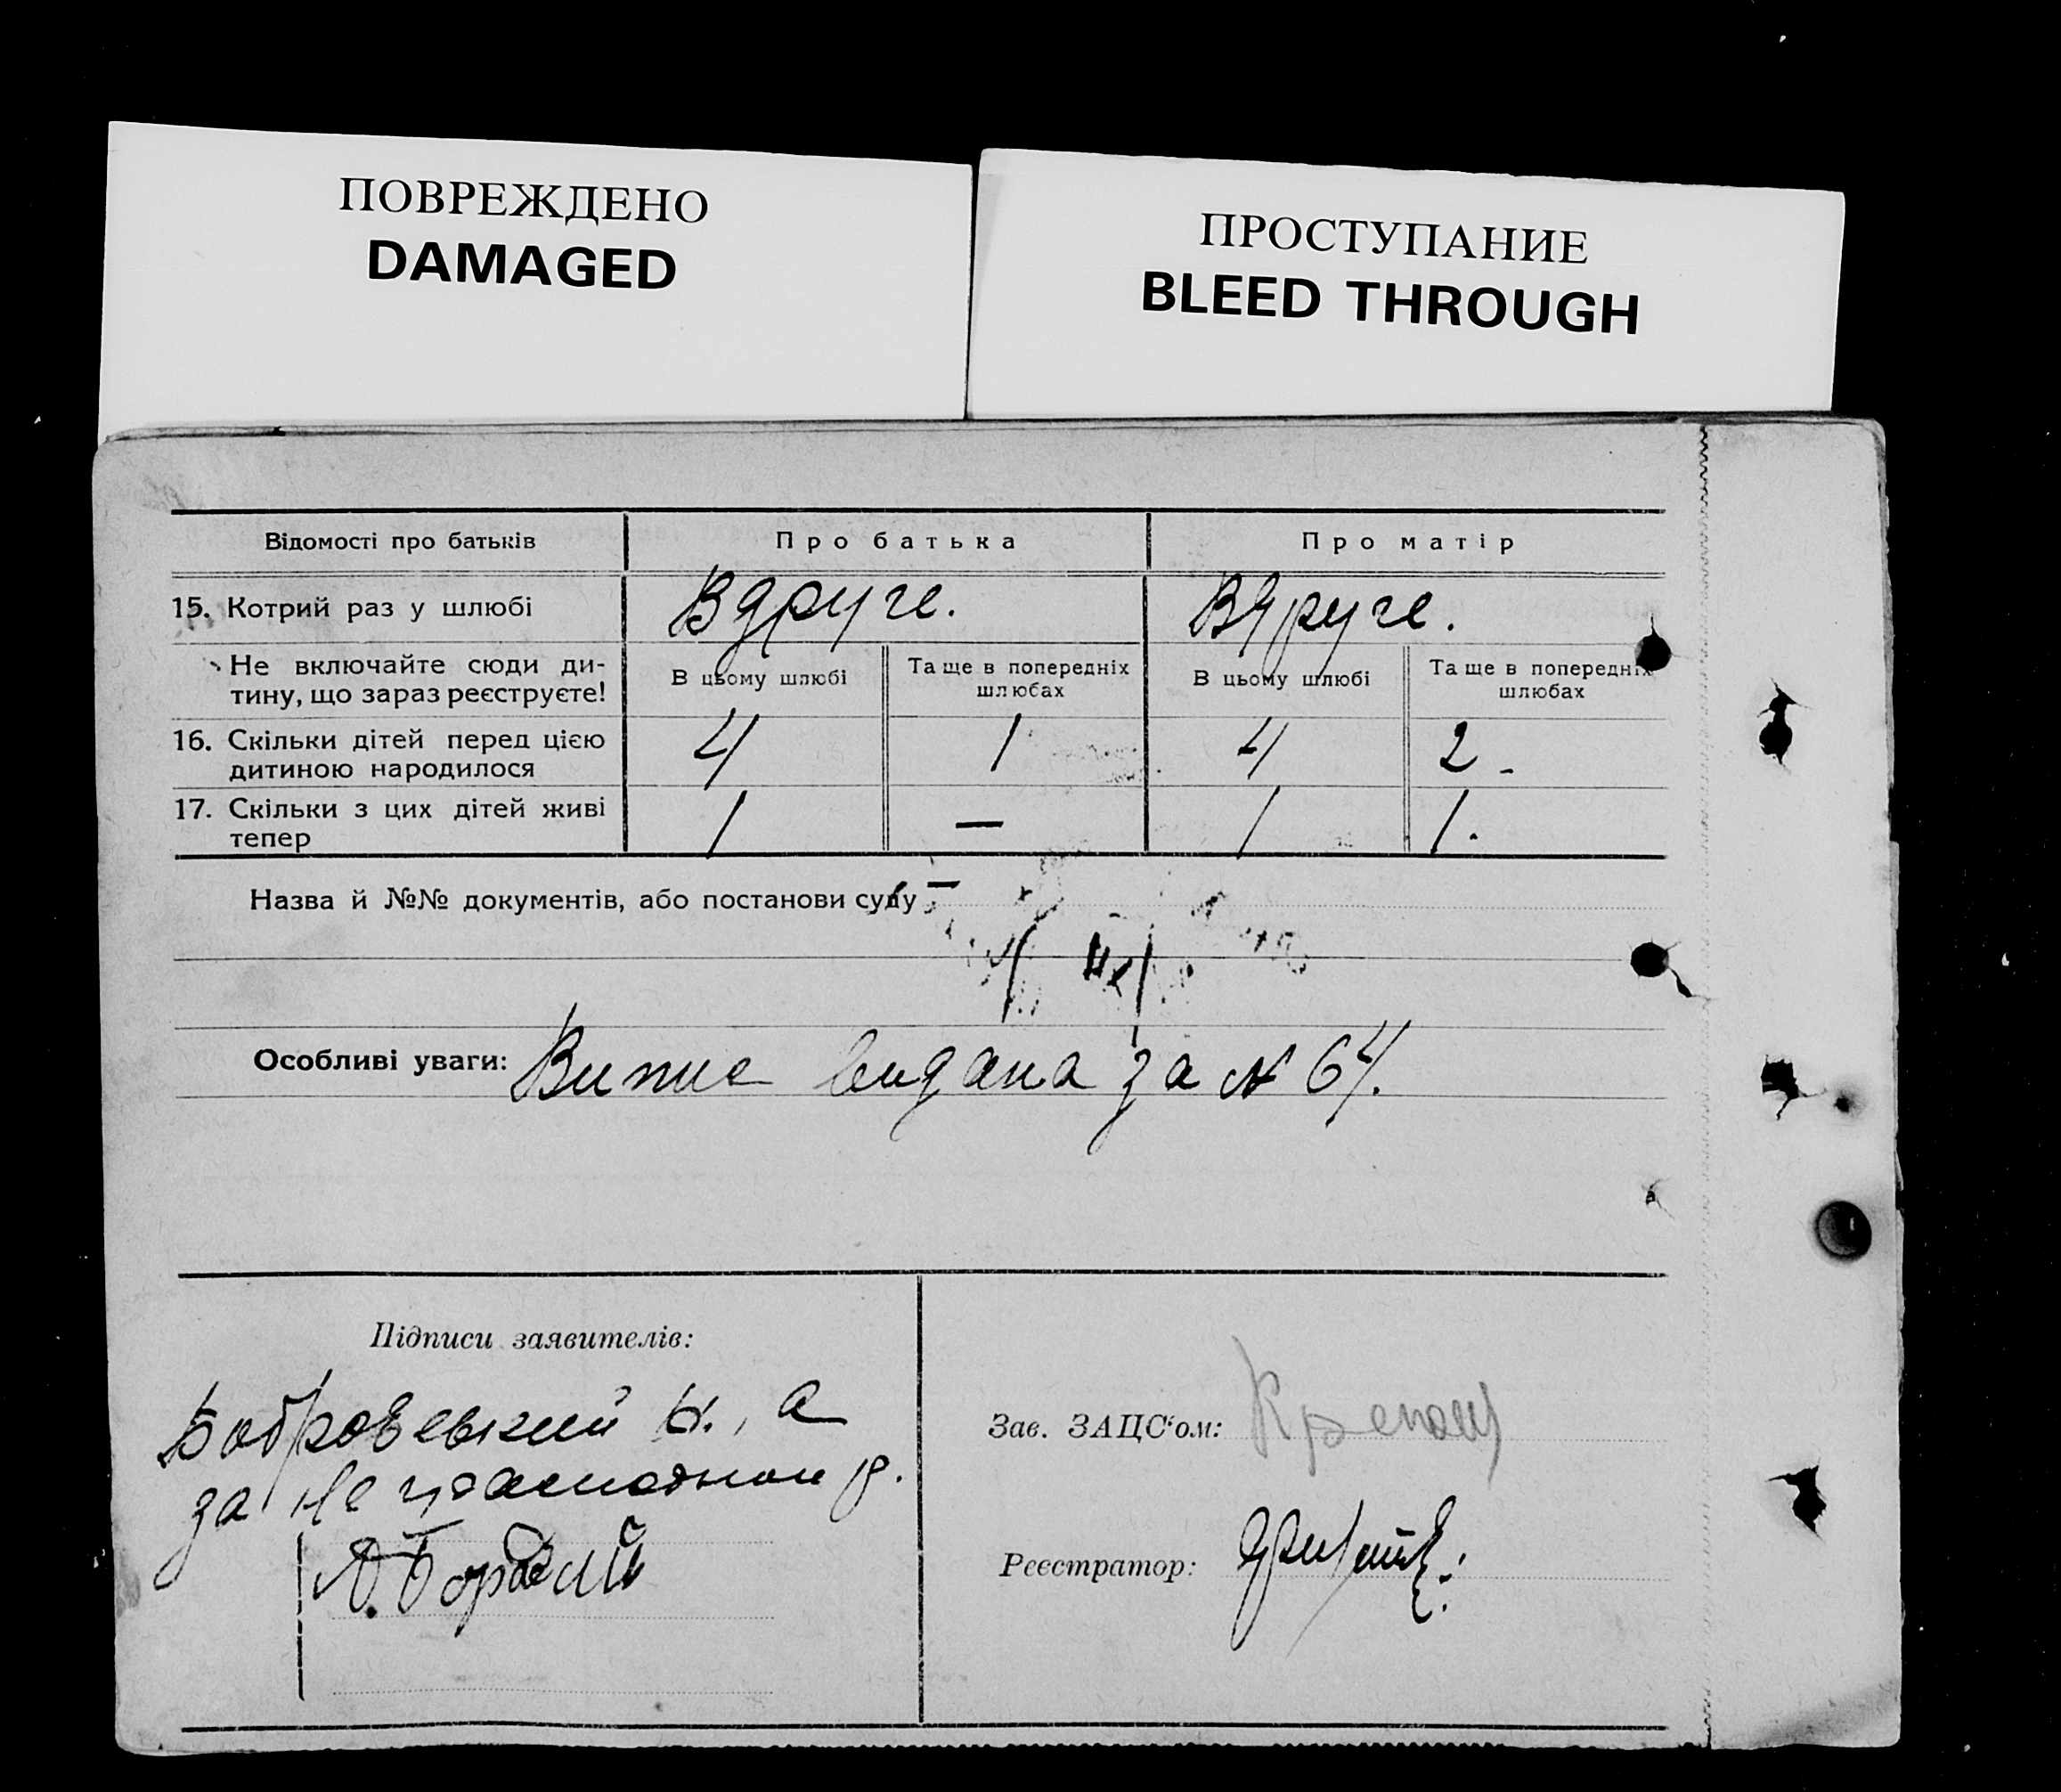 ПОВРЕЖДЕНО
DAMAGED
ПРОСТУПАНИЕ
BLEED THROUGH
Відомості про батьків
Про батька
Про матір
15. Котрий раз у шлюбі
Вдруге.
Вдруге.
Не включайте сюди ди-
тину, що зараз реєструєте!
В цьому шлюбі
Та ще в попередніх
шлюбах
В цьому шлюбі
Та ще в попередніх
шлюбах
16. Скільки дітей перед цією
дитиною народилося
4
1
4
2
17. Скільки з цих дітей живі
тепер
1
—
1
1.
Назва й №№ документів, або постанови суду —
Особливі уваги: Випис видана за № 64.
Підписи заявителів:
Бобровський Н., а
за
Зав. ЗАЦС'ом:
Реєстратор: